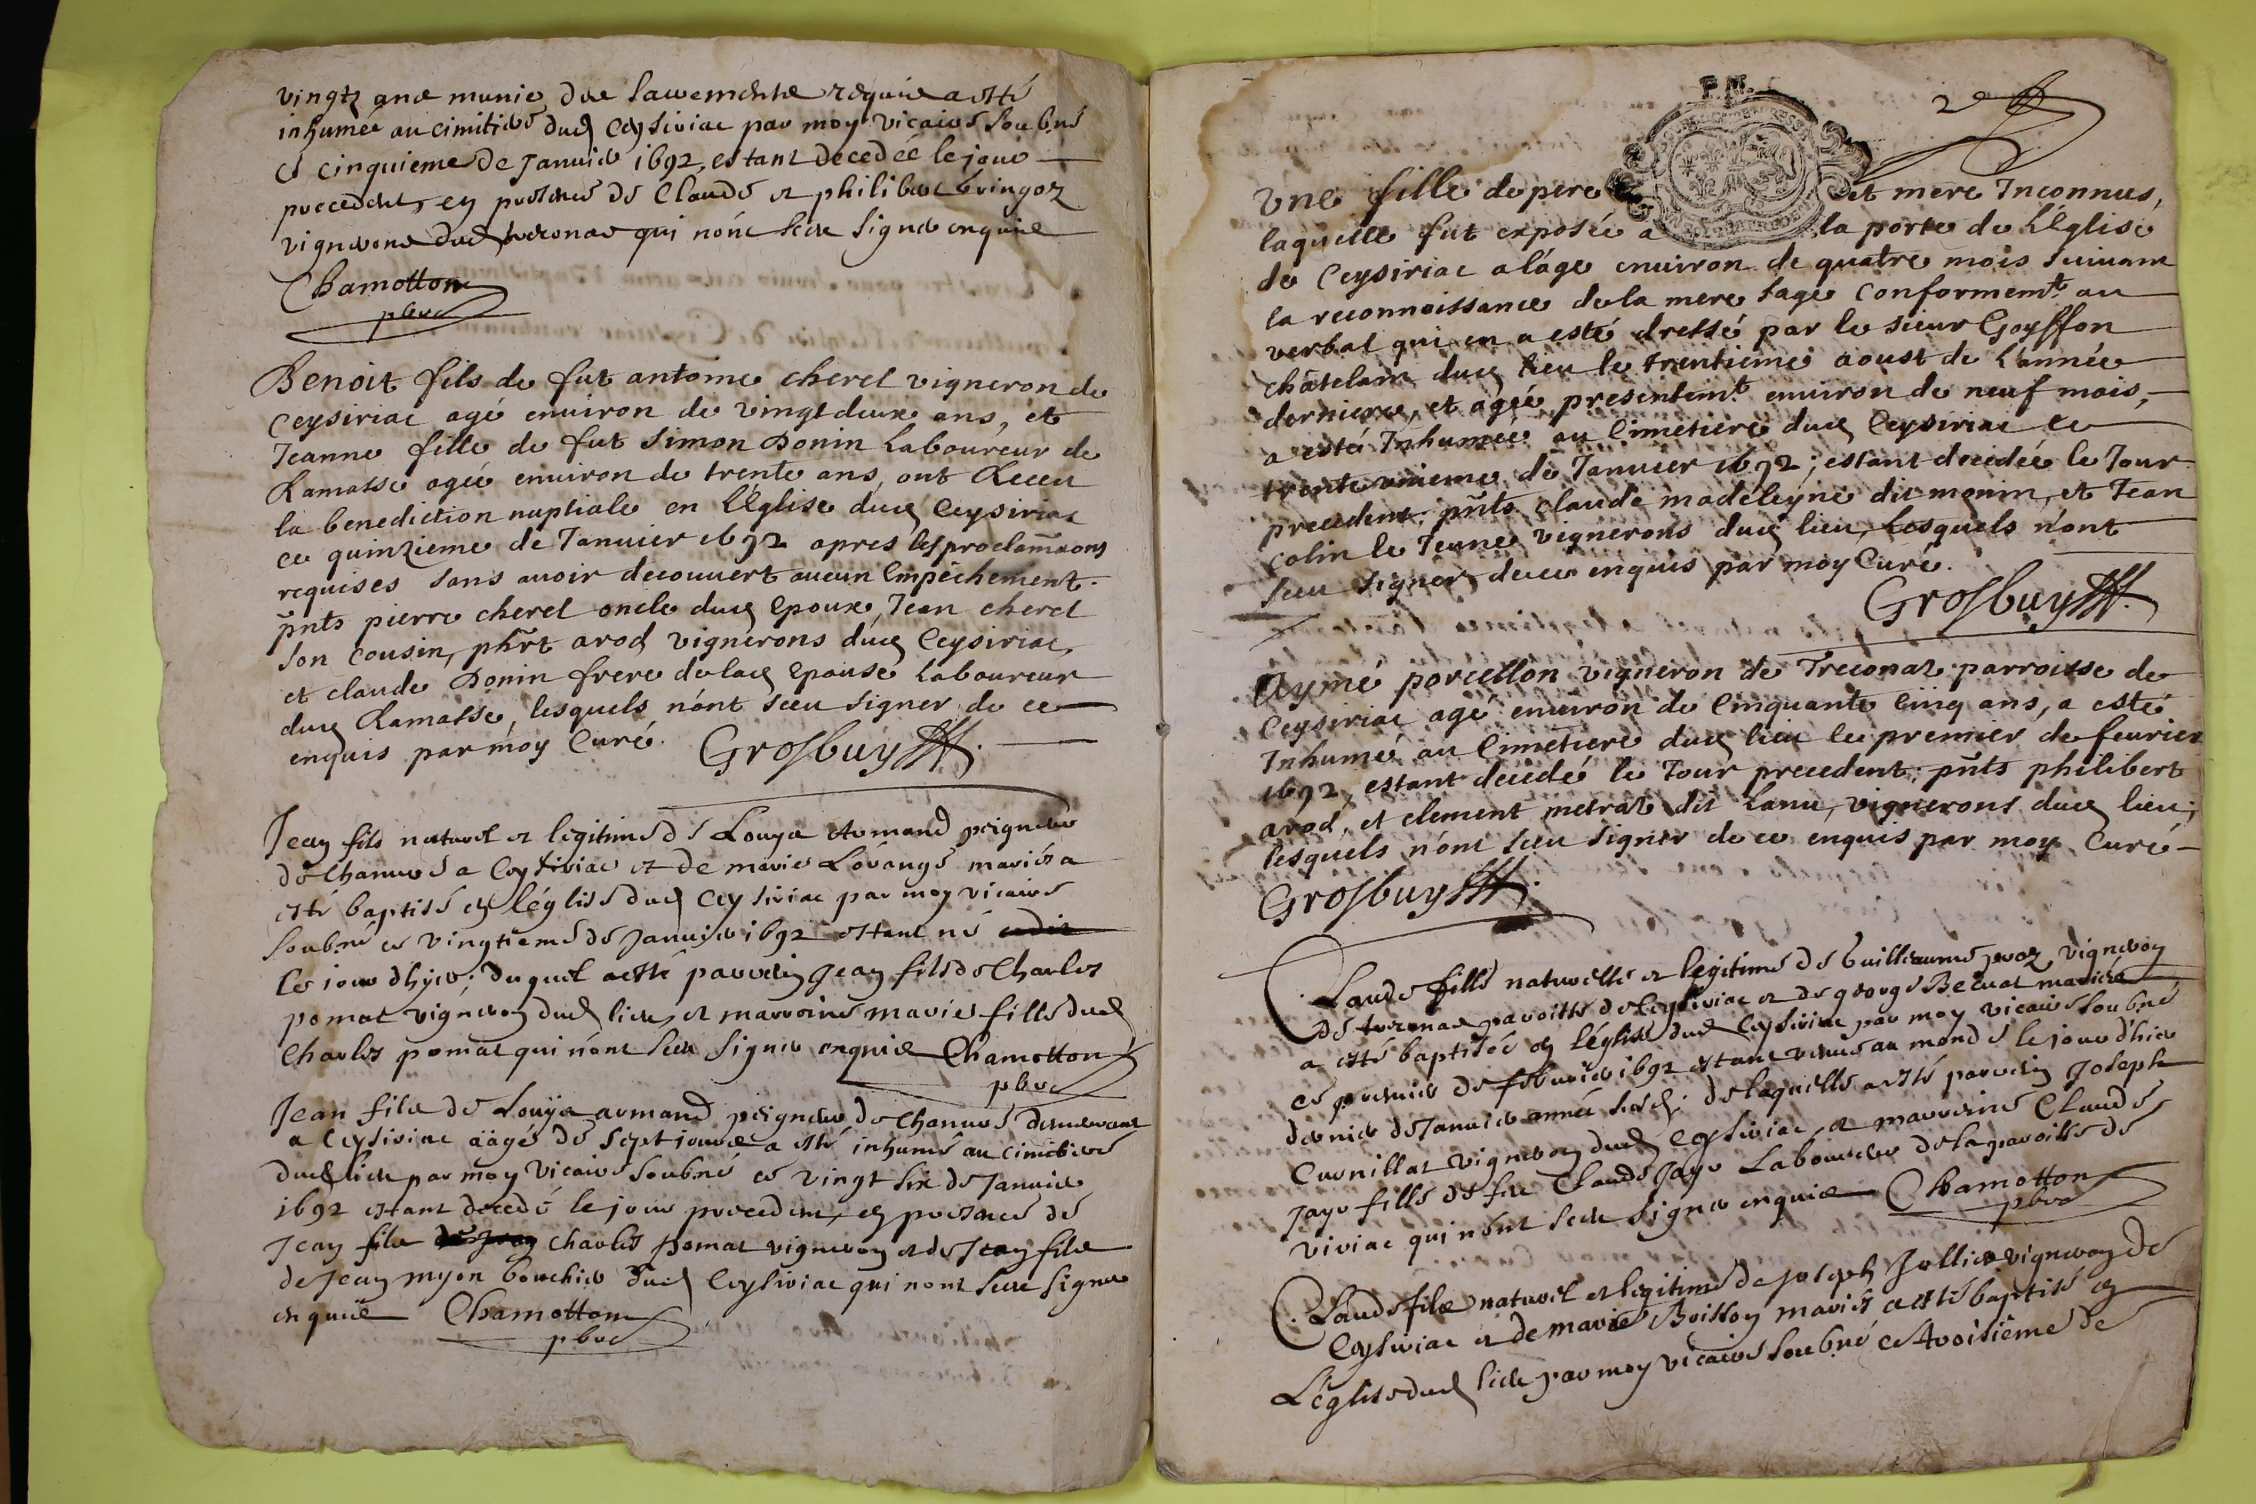 vingtz ans munie des sacrements requis a esté
inhumée au cimitiere dud Ceysiriac par moy vicaire soubné
ce cinquieme de Janvier 1692 estant decedée le jour
precedent, en presence de Claude et philibert
vignerons dud treconas qui nônt sceu signer enquis
Chamotton
pbre
Benoit fils de fut antoine cherel vigneron de
Ceysiriac agé environ de vingt deux ans, et
Jeanne fille de fut Simon Donin Laboureur de
Ramasse agée environ de trente ans, ont Receu
la benediction nuptiale en L'Eglise dud Ceysiriac
ce quinzieme de Janvier 1692 apres les proclamãons
requises sans avoir decouvert aucun Empêchement.
pñts pierre cherel oncle dud Epoux, Jean cherel
son cousin, phrt arod vignerons dud Ceysiriac,
et claude Donin frere de lad Epouse Laboureur
dud Ramasse, lesquels n'ont sceu signer de ce
enquis par moy Curé. Grosbuy
Jean fils naturel et legitime de Louys Armand peigneur
de chanvre a Ceysiriac et de marie mariés a
esté baptisé en léglise dud Ceysiriac par moy vicaire
soubné ce vingtieme de Janvier 1692 estant né
le jour dhyer; duquel a esté parrein Jean fils de Charles
pomat vigneron dud lieu, et marroine marie fille dud
Charles pomat qui nônt sceu signer enquis Chamotton
pbre
Jean fils de Louÿs armand peigneur de Chanvre demeurant
a Ceysiriac aâgé de sept jours a esté inhumé au cimitiere
dud lieu par moy vicaire soubné ce vingt six de Janvier
1692 estant decedé le jour precedent, en presence de
Jean fils Charles pomat vigneron et de Jean fils
de Jean myon bouchier dud Ceysiriac qui nont sceu signer
enquis Chamotton
pbre
P.M.
2e
Une fille de pere et mere Inconnus,
laquelle fut exposée a la porte de L'Eglise
de Ceysiriac a l'âge environ de quatre mois suivant
la reconnoissance de la mere sage conformemt. au
verbal qui en a esté dressé par le sieur Goyffon
châtelain dud lieu le trentieme aoust de L'année
derniere, et agée presentemt. environ de neuf mois,
a esté Inhumée au Cimetiere dud Ceysiriac ce
trente unieme de Janvier 1692; estant decedée le Jour
precedent; pñts claude madeleyne dit monin, et Jean
colin le Jeune vignerons dud lieu, Lesquels n'ont
sceu signer de ce enquis par moy Curé.
Grosbuy
Aymé porcellon vigneron de Treconas parroisse de
Ceysiriac agé environ de Cinquante Cinq ans, a esté
Inhumé au Cimetiere dud lieu le premier de fevrier
1692, estant decedé le Jour precedent; pñts philibert
arod, et clement metral dit Lanu, vignerons dud lieu,
lesquels n'ont sceu signer de ce enquis par moy Curé
Grosbuy
Claude fille naturelle et legitime de Guillaume vigneron
de treconas paroisse de Ceysiriac et de george mariés
a esté baptisée en léglise dud Ceysiriac par moy vicaire soubné
ce premier de febvrier 1692 estant venue au monde le jour d'hier
dernier de Janvier année susd; de laquelle a esté parrein Joseph
Curnillat vigneron dud Ceysiriac, et marreine Claude
Jayr fille de feu Claude Jayr Laboureur de la paroisse de
viriac qui nônt sceu signer enquis Chamotton
pbre
Claude fils naturel et legitime de Joseph vigneron de
Ceysiriac et de marie Buisson mariés a esté baptisé en
L'église dud lieu par moy vicaire soubné ce troisieme de